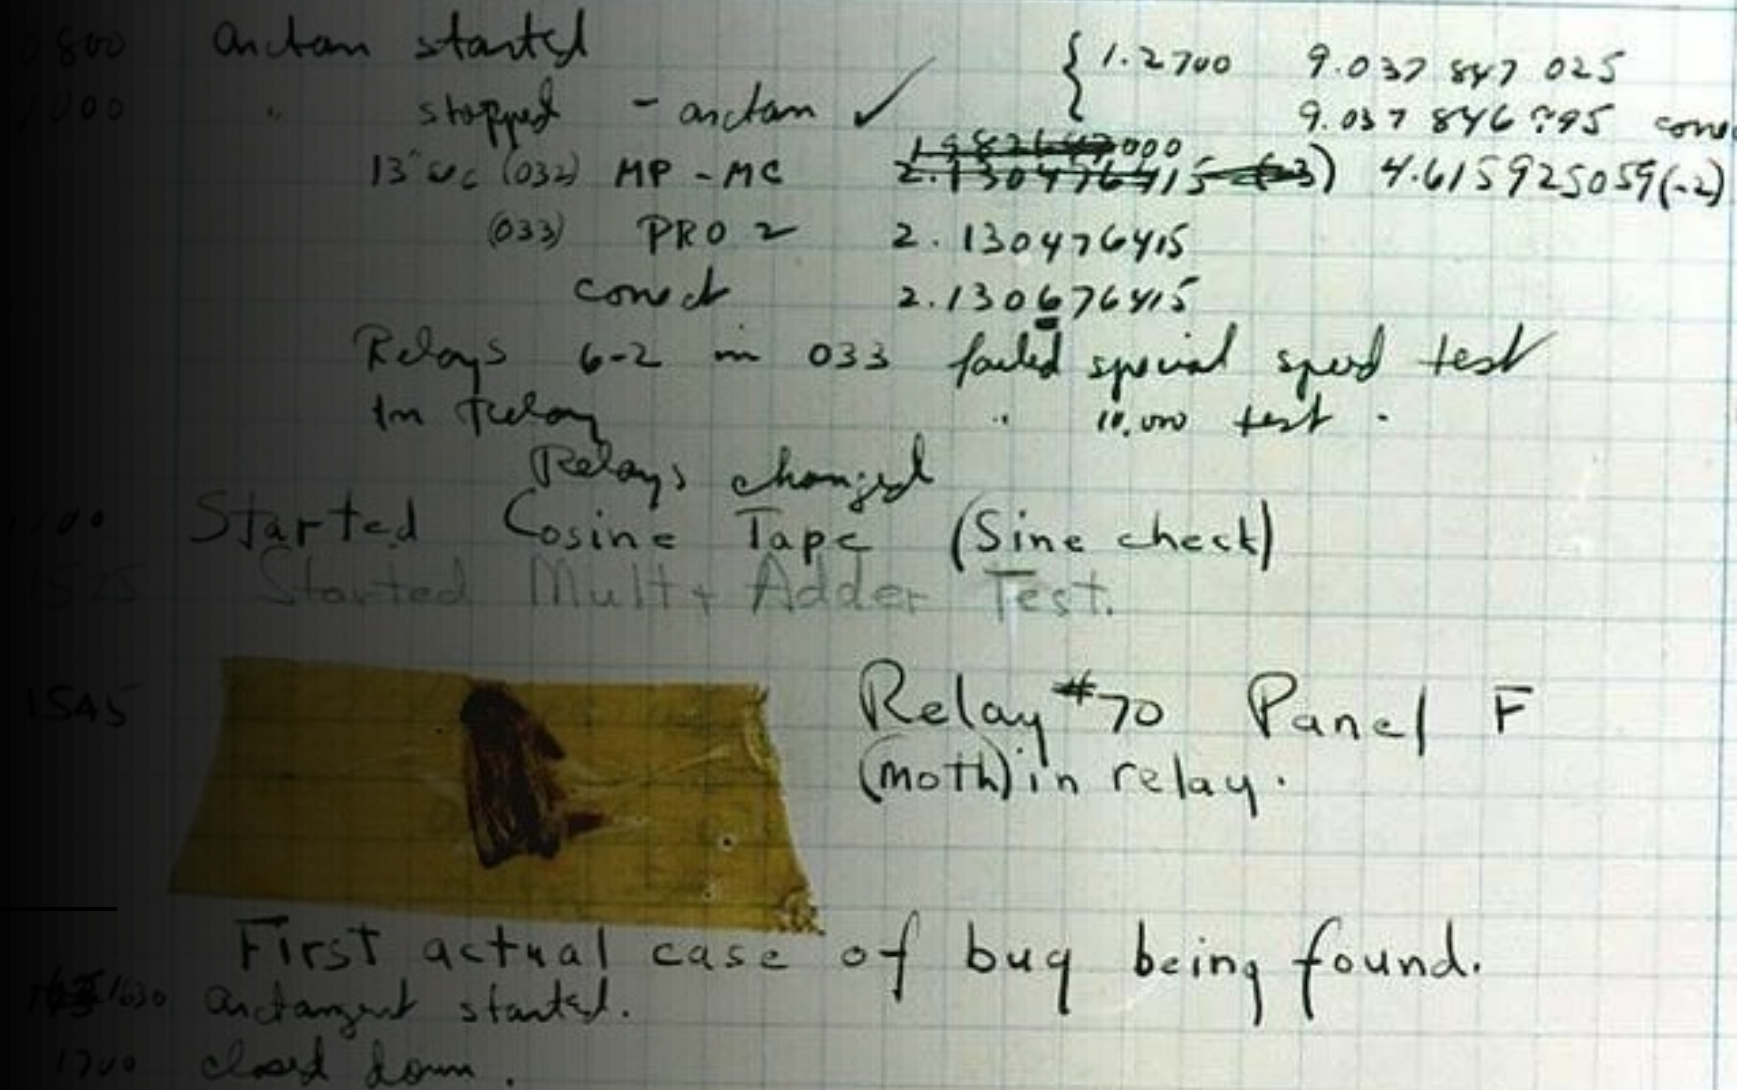 0800 arctan started { 1.2700 9.037 847 025
1000 " stopped - arctan ✓ 9.037 846 795
13"uc (032) MP - MC 2.130476415 (-3) 4.615925059(-2)
(033) PRO 2 2.130476415
conect 2.130676415
Relays 6-2 in 033 failed special speed test
In relay " 10,000 test .
Relays changed
1100 Started Cosine Tape (Sine check)
1525 Started Mult + Adder Test.
1545 Relay #70 Panel F
(moth) in relay.
First actual case of bug being found.
1630 arctangent started.
1700 closed down .